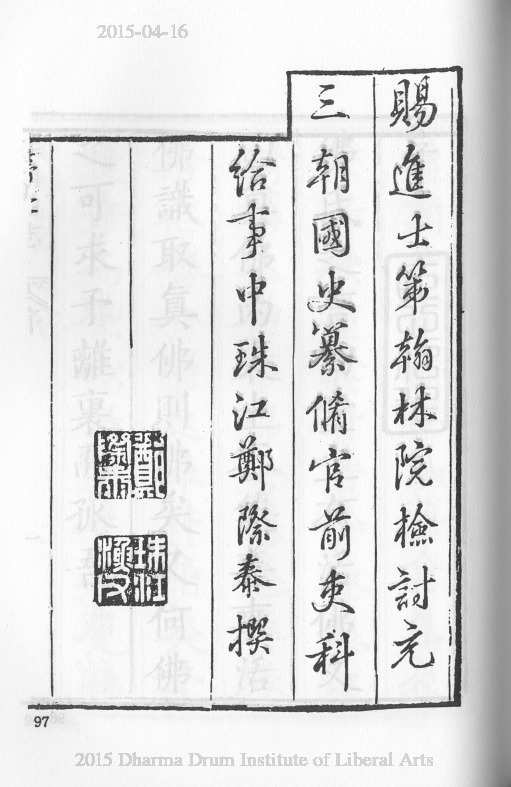 2015-04-16
賜進士第翰林院檢討充
三朝國史纂脩官前吏科
給事中珠江鄭際泰撰
鄭際泰
珠江
97
2015 Dharma Drum Institute of Liberal Arts